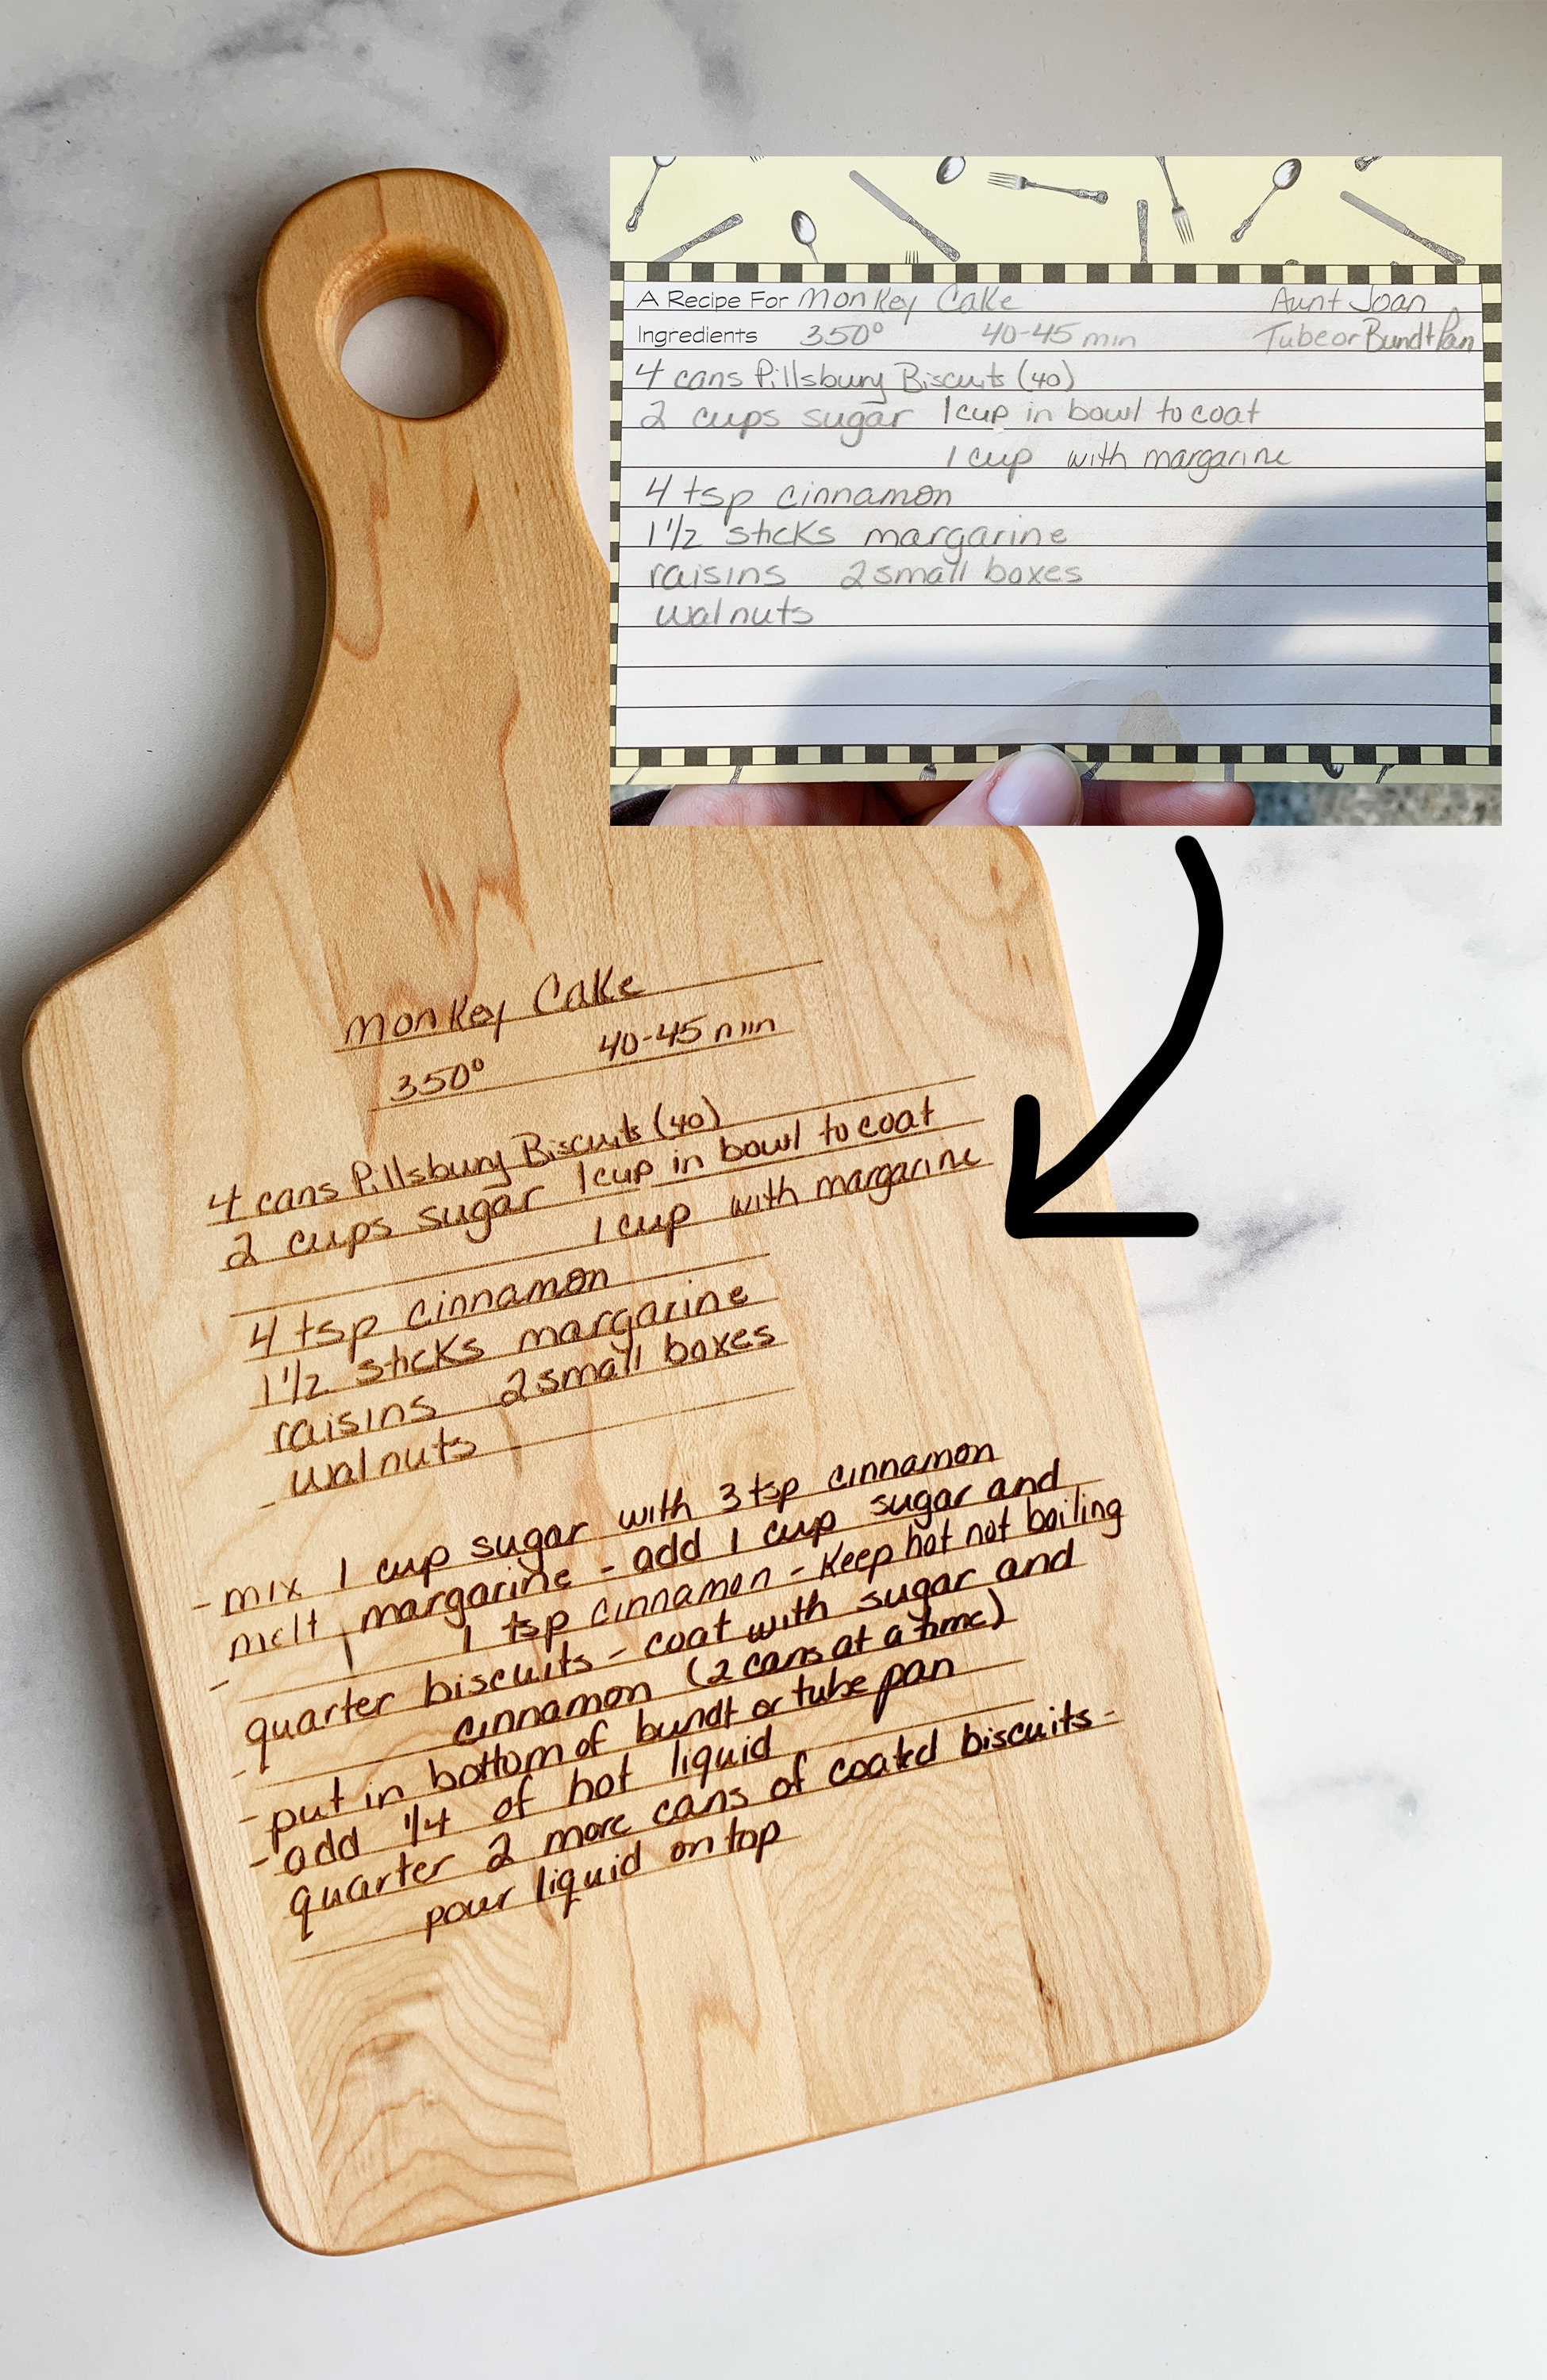 A Recipe For Monkey Cake Aunt Joan
Ingredients 350° 40-45 min Tube or Bundt Pan
4 cans Pillsbury Biscuits (40)
2 cups sugar 1 cup in bowl to coat
1 cup with margarine
4 tsp cinnamon
1 1/2 sticks margarine
raisins 2 small boxes
walnuts
Monkey Cake
350° 40-45 min
4 cans Pillsbury Biscuits (40)
2 cups sugar 1 cup in bowl to coat
1 cup with margarine
4 tsp cinnamon
1 1/2 sticks margarine
raisins 2 small boxes
walnuts
- mix 1 cup sugar with 3 tsp cinnamon
melt margarine - add 1 cup sugar and
- 1 tsp cinnamon - Keep hot not boiling
quarter biscuits - coat with sugar and
- cinnamon (2 cans at a time)
- put in bottom of bundt or tube pan
- add 1/4 of hot liquid
quarter 2 more cans of coated biscuits -
pour liquid on top